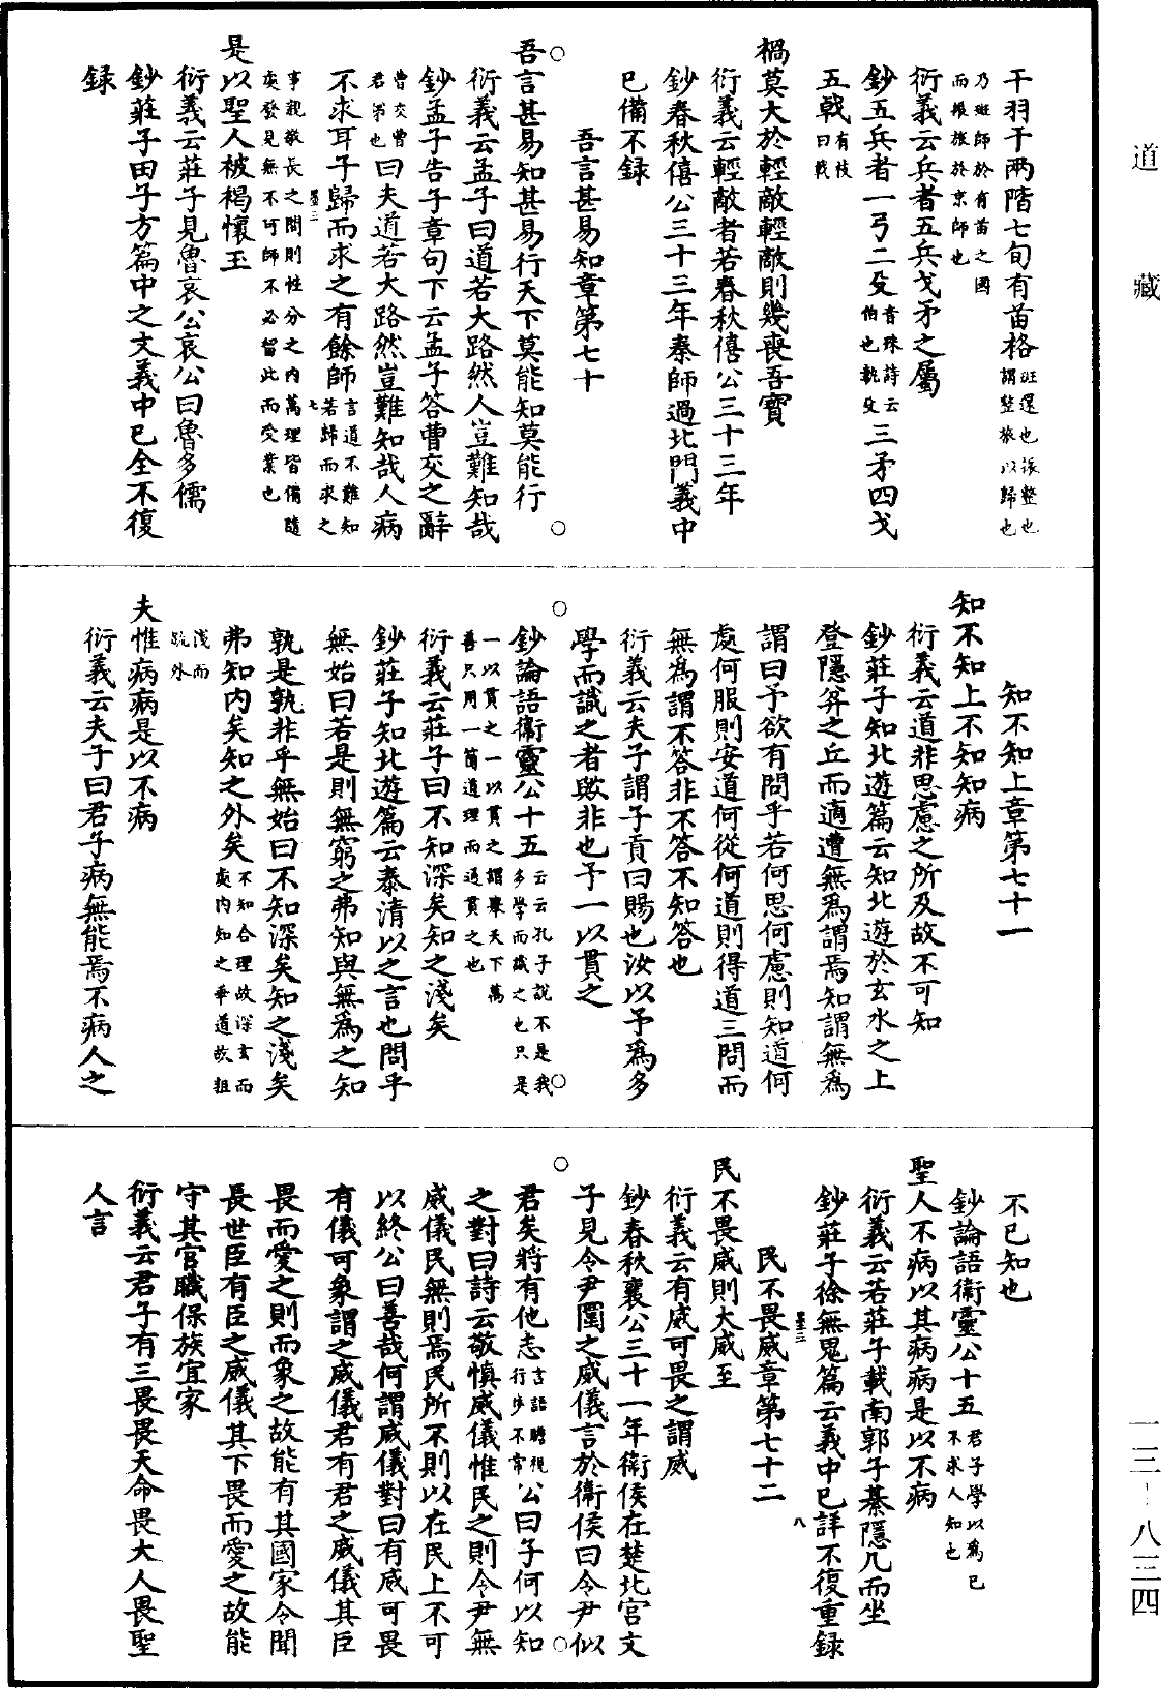 道藏
一三–八三四
干羽于兩階七旬有苗格班還也振整也謂整旅以歸也
乃班師於有苗之國而振旅於京師也
衍義云兵者五兵戈矛之屬
鈔五兵者一弓二殳音殊詩云伯也執殳三矛四戈
五戟有枝曰戟
禍莫大於輕敵輕敵則幾喪吾寶
衍義云輕敵者若春秋僖公三十三年
鈔春秋僖公三十三年秦師過北門義中
已備不録
吾言甚易知章第七十
吾言甚易知甚易行天下莫能知莫能行
衍義云孟子曰道若大路然人豈難知哉
鈔孟子告子章句下云孟子答曹交之辭
曹交曹君弟也曰夫道若大路然豈難知哉人病
不求耳子歸而求之有餘師言道不難知若歸而求之
墨三
七
事親敬長之間則性分之內萬理皆備隨處發見無不可師不必留此而受業也
是以聖人被褐懷玉
衍義云莊子見魯哀公哀公曰魯多儒
鈔莊子田子方篇中之文義中已全不復
録
知不知上章第七十一
知不知上不知知病
衍義云道非思慮之所及故不可知
鈔莊子知北遊篇云知北遊於玄水之上
登隱弅之丘而適遭無爲謂焉知謂無爲
謂曰予欲有問乎若何思何慮則知道何
處何服則安道何從何道則得道三問而
無爲謂不答非不答不知答也
衍義云夫子謂子貢曰賜也汝以予爲多
學而識之者歟非也予一以貫之
鈔論語衛靈公十五云云孔子說不是我多學而識之也只是
一以貫之一以貫之謂舉天下萬善只用一箇道理而通貫之也
衍義云莊子曰不知深矣知之淺矣
鈔莊子知北遊篇云泰清以之言也問乎
無始曰若是則無窮之弗知與無爲之知
孰是孰非乎無始曰不知深矣知之淺矣
弗知內矣知之外矣不知合理故深玄而處內知之乖道故粗
淺而疏外
夫惟病病是以不病
衍義云夫子曰君子病無能焉不病人之
不已知也
鈔論語衛靈公十五君子學以爲已不求人知也
聖人不病以其病病是以不病
衍義云若莊子載南郭子綦隱几而坐
鈔莊子徐無鬼篇云義中已詳不復重録
民不畏威章第七十二
墨三
八
民不畏威則大威至
衍義云有威可畏之謂威
鈔春秋襄公三十一年衛侯在楚北宮文
子見令尹圍之威儀言於衛侯曰令尹似
君矣將有他志言語瞻視行步不常公曰子何以知
之對曰詩云敬慎威儀惟民之則令尹無
威儀民無則焉民所不則以在民上不可
以終公曰善哉何謂威儀對曰有威可畏
有儀可象謂之威儀君有君之威儀其臣
畏而愛之則而象之故能有其國家令聞
長世臣有臣之威儀其下畏而愛之故能
守其官職保族宜家
衍義云君子有三畏畏天命畏大人畏聖
人言